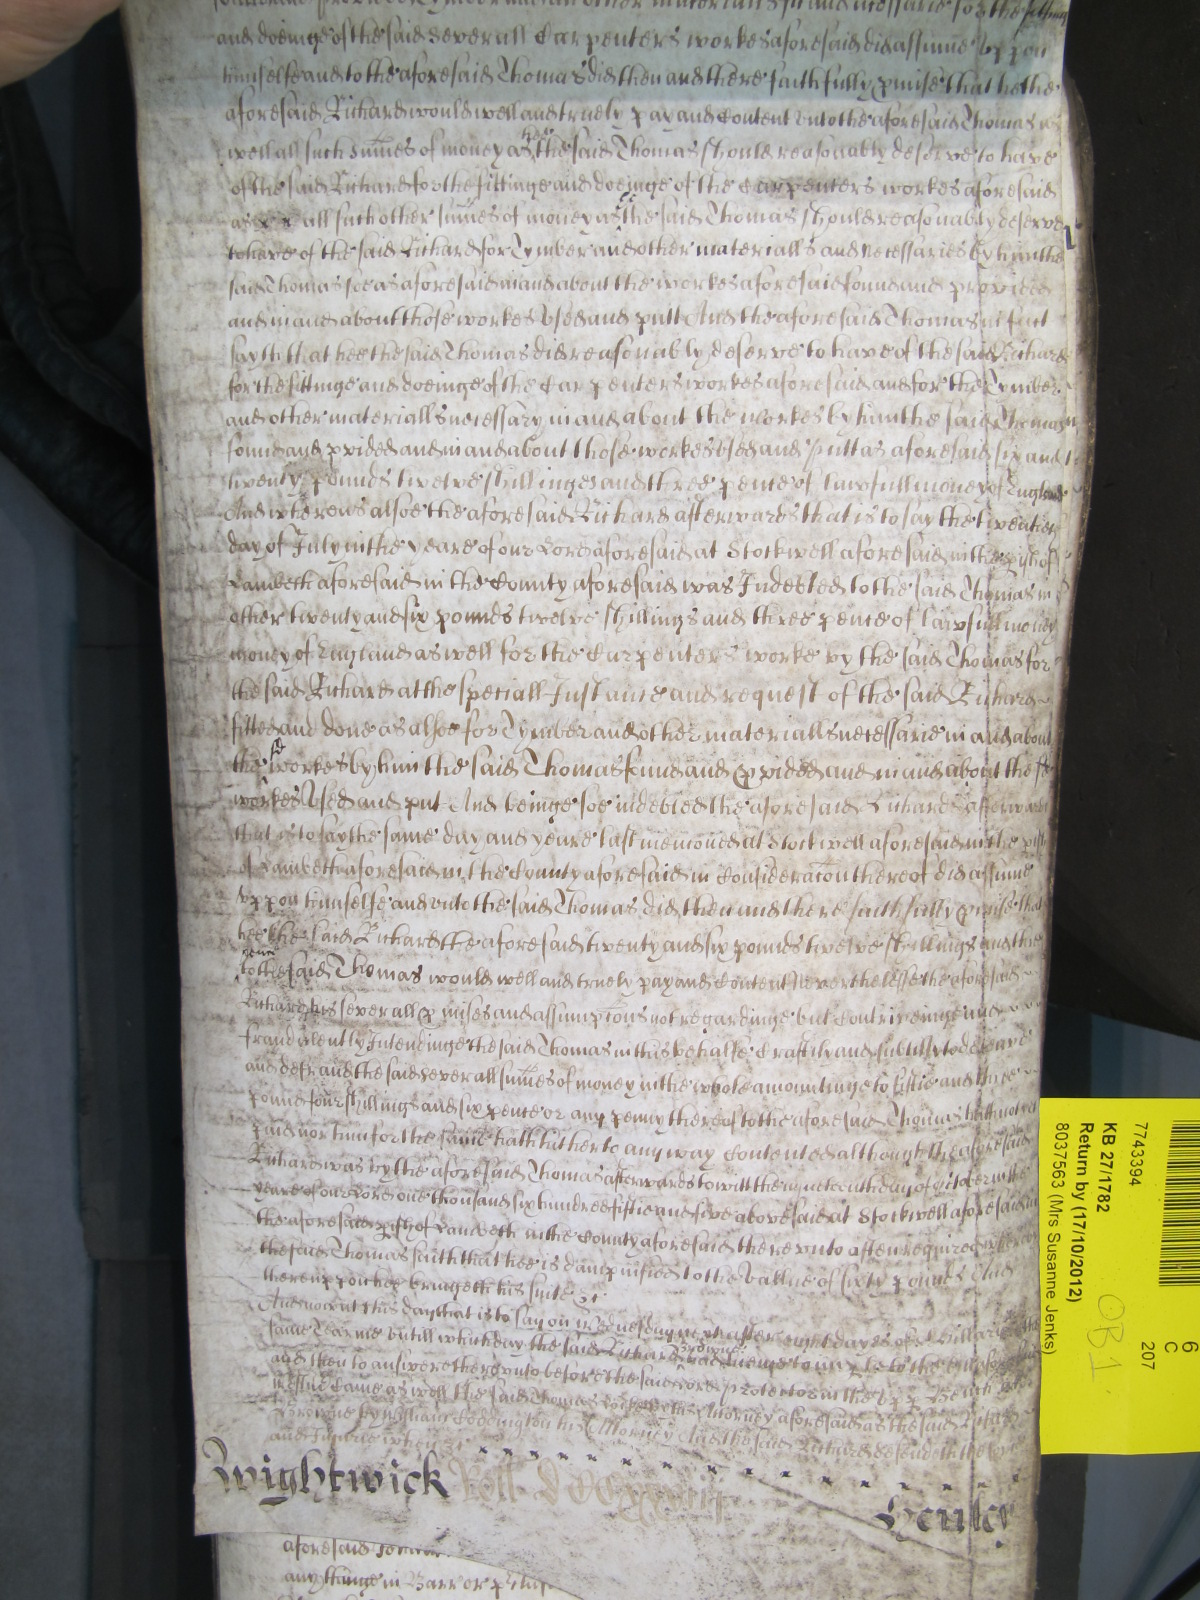 and doeinge of the said severall Carpenters workes aforesaid did assume uppon
himselfe and to the aforesaid Thomas did then and there faithfully pmise that hee the
aforesaid Richard would well and truely pay and Content unto the aforesaid Thomas as
well all such sumes of money as hee the said Thomas should reasonably deserve to have
of the said Richard for the fittinge and doeinge of the Carpenters workes aforesaid
as all such other sumes of money as the said Thomas should reasonably deserve
to have of the said Richard for Tymber and other materialls and necessaries by him the
said Thomas soe as aforesaid in and about the workes aforesaid found and provided
and in and about those workes used and putt And the aforesaid Thomas in fact
sayth that hee the said Thomas did reasonably deserve to have of the said Richard
for the fittinge and doeinge of the Carpenters workes aforesaid and for the Tymber
and other materialls necessary in and about the workes by him the said Thomas
found and pvided and in and about those workes used and putt as aforesaid six and
twenty pounds twelve shillinges and three pence of lawfull money of England
And whereas alsoe the aforesaid Richard afterwards that is to say the twentieth
day of July in the yeare of our Lord aforesaid at Stockwell aforesaid in the pish of
Lambeth aforesaid in the County aforesaid was Indebted to the said Thomas in
other twenty and six pounds twelve shillings and three pence of lawfull money
money of England as well for the Carpenters worke by the said Thomas for
the said Richard at the speciall Instance and request of the said Richard
fitted and done as alsoe for Tymber and other materialls necessarie in and about
the sd workes by him the said Thomas found and pvided and in and about the sd
workes used and put And beinge soe indebted the aforesaid Richard afterwards
that is to say the same day and yeare last menconed at Stockwell aforesaid in the pish
of Lambeth aforesaid in the County aforesaid in Consideracon thereof did assume
uppon himselfe and unto the said Thomas did then and there faithfully pmise that
hee the said Richard the aforesaid twenty and six pounds twelve shillings and three
pence
to the said Thomas would well and truely pay and Content Neverthelesse the aforesaid
Richard his severall pmises and assumptions not regardinge but Contriveinge and
fraudulently Intendinge the said Thomas in this behalfe Craftily and subtilly to deceive
and defraud the said severall sumes of money in the whole amountinge to fiftie and three
pound four shillings and six pence or any penny thereof to the aforesaid Thomas hath not
paid nor him for the same hath hitherto any way Contented although the aforesaid
Richard was by the aforesaid Thomas afterwards to witt the nineteenth day of October in the
yeare of our Lord one thousand six hundred fiftie and five abovesaid at Stockwell aforesaid in
the aforesaid pish of Lambeth in the County aforesaid thereunto often required whereuppon
the said Thomas saith that hee is dampnified to the vallue of sixty pounds And
thereuppon hee bringeth his suite &c
And now at this day that is to say on Wednesday next after eight dayes of St Hillarie
same Tearme untill which day the said Richard had licence to imparle to the bill aforesaid
and then to answere thereunto before the said Lord Protector in the upp Bench
came as well the said Thomas by his Attorney aforesaid as the said Richard
by William Eddington his Attorney And the said Richard defendeth the force
and Injurie when &c
Wightwick Roll
Henley
aforesaid
any thinge in Barr or
7743394
KB 27/1782
Return by (17/10/2012)
8037563 (Mrs Susanne Jenks)
6
C
207
OB 1